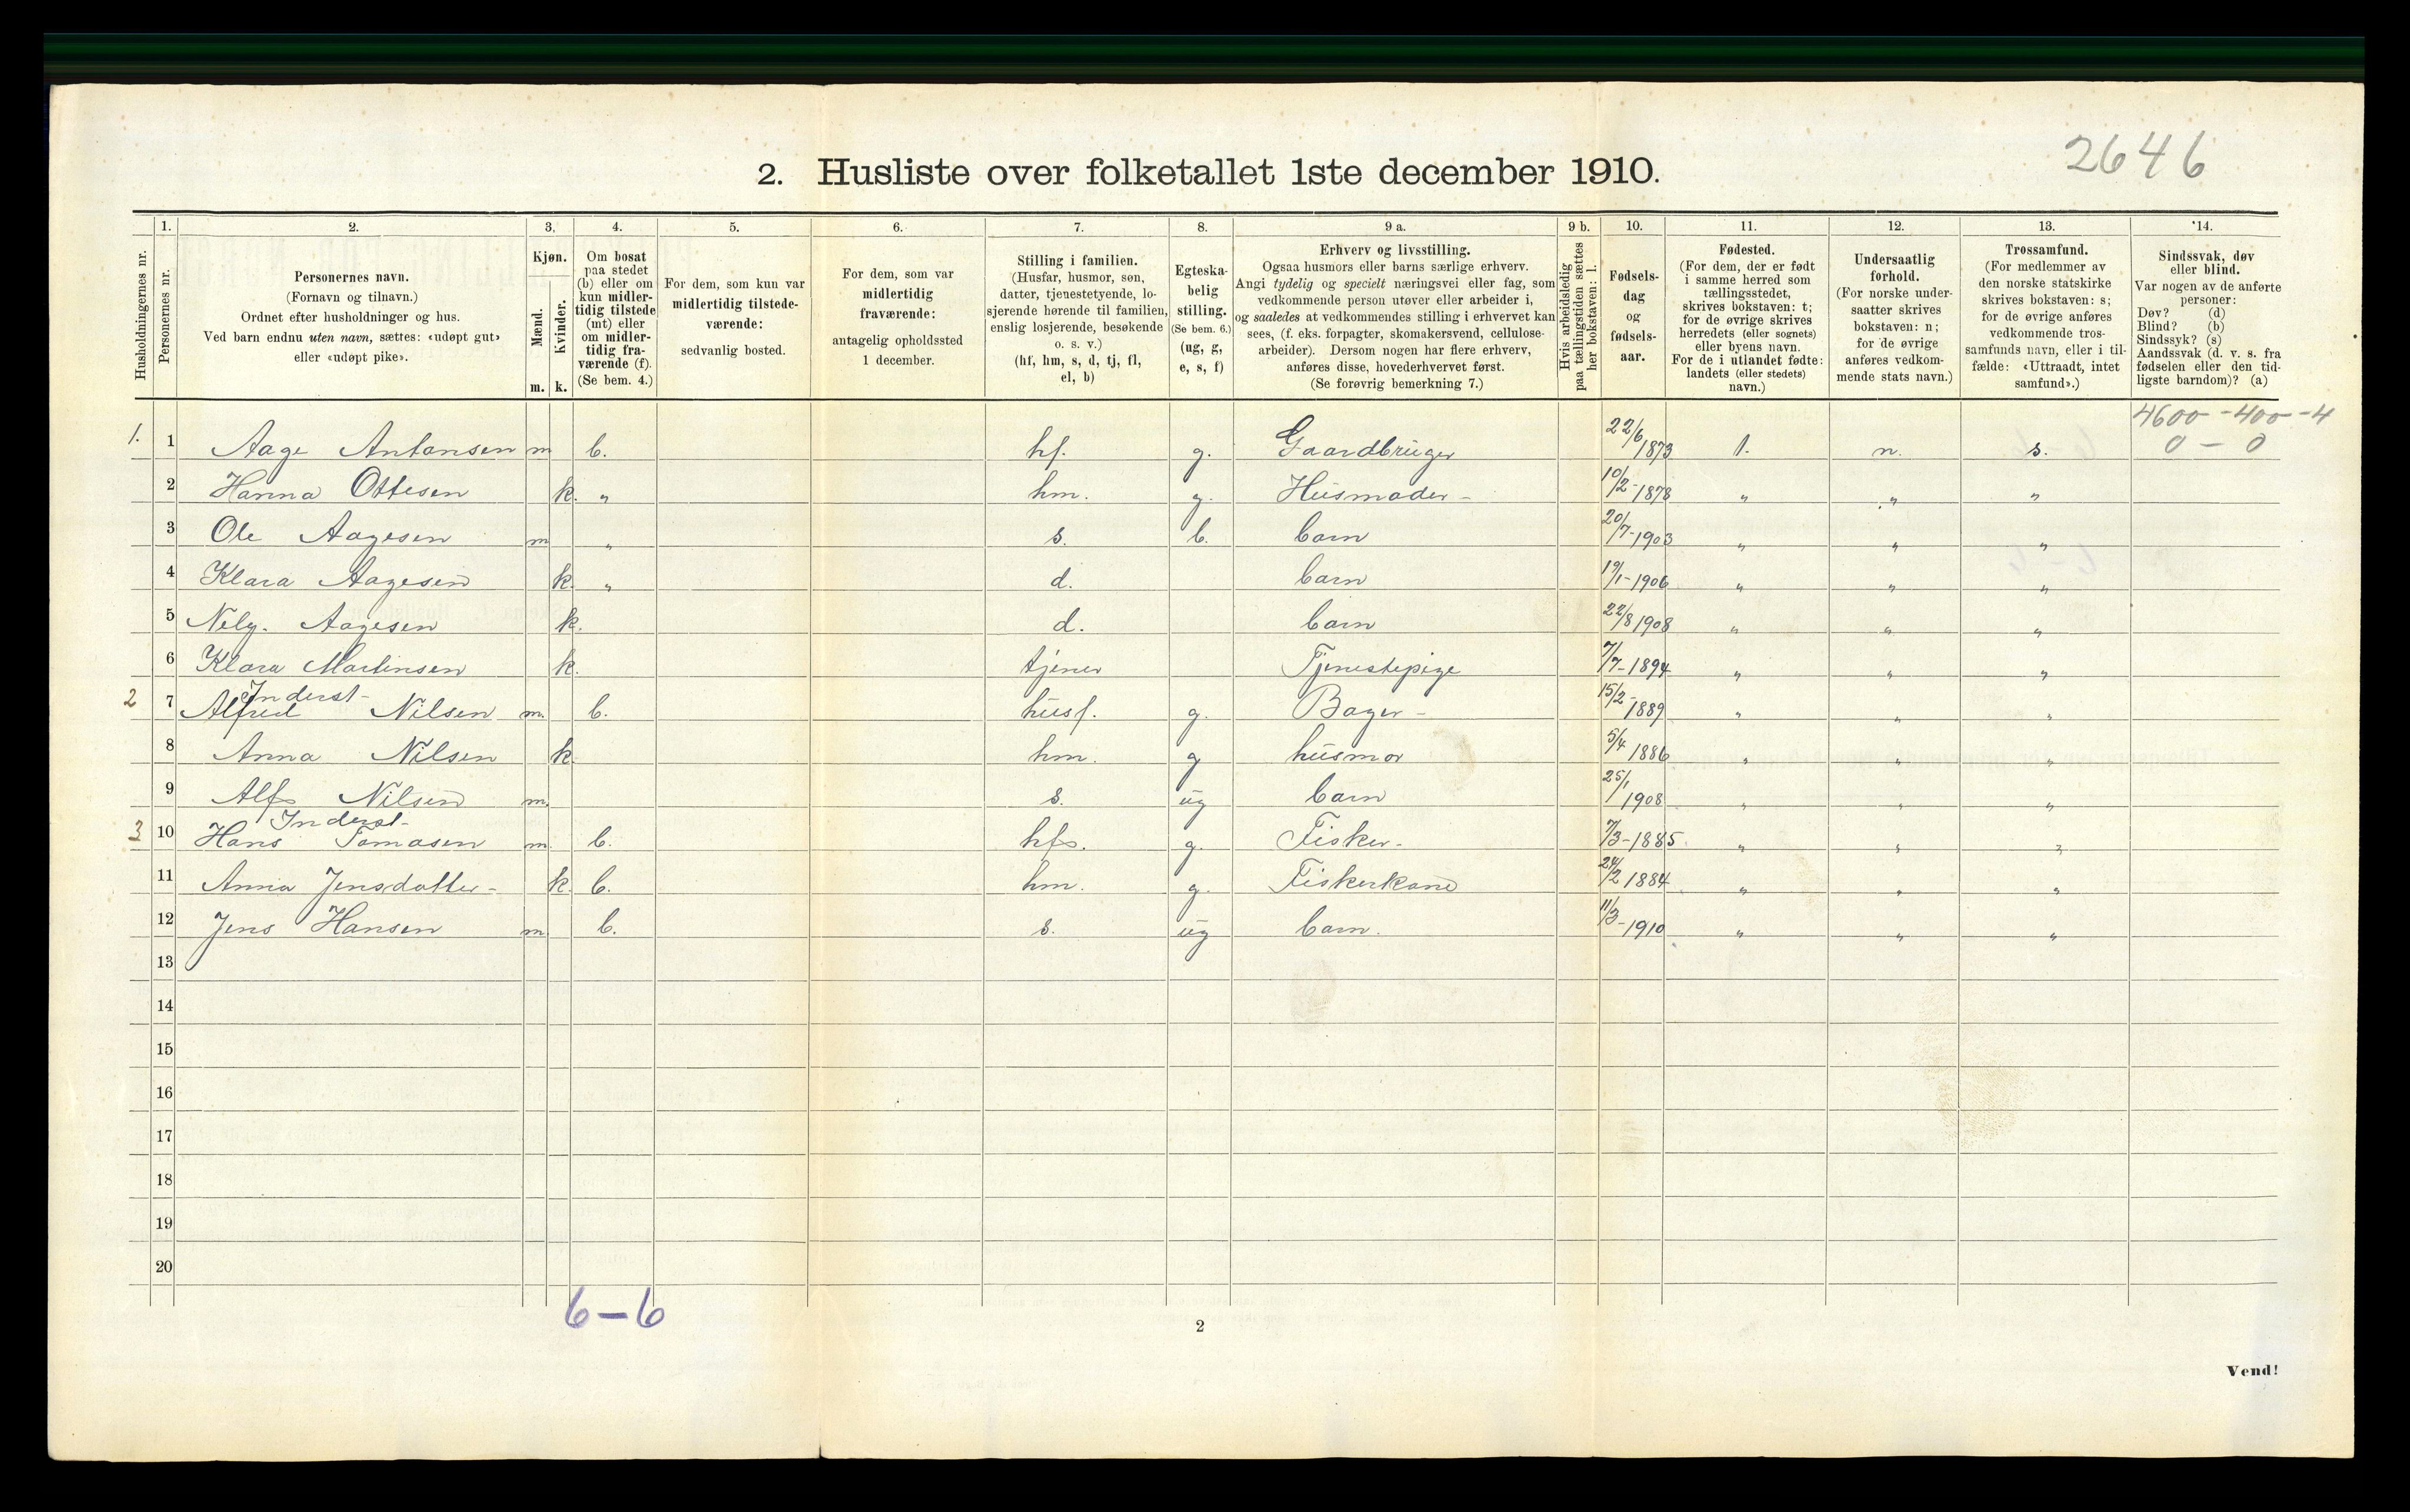 2646
2. Husliste over folketallet 1ste december 1910.
Husholdningernes nr.
1.
Personernes nr.
2.
Personernes navn.
(Fornavn og tilnavn.)
Ordnet efter husholdninger og hus.
Ved barn endnu uten navn, sættes: «udøpt gut»
eller «udøpt pike».
3.
Kjøn.
Mænd.
Kvinder.
m. k.
4.
Om bosat
paa stedet
(b) eller om
kun midler-
tidig tilstede
(mt) eller
om midler-
tidig fra-
værende (f).
(Se bem. 4.)
5.
For dem, som kun var
midlertidig tilstede-
værende:
sedvanlig bosted.
6.
For dem, som var
midlertidig
fraværende:
antagelig opholdssted
1 december.
7.
Stilling i familien.
(Husfar, husmor, søn,
datter, tjenestetyende, lo-
sjerende hørende til familien,
enslig losjerende, besøkende
o. s. v.)
(hf, hm, s, d, tj, fl,
el, b)
8.
Egteska-
belig
stilling.
(Se bem. 6.)
(ug, g,
e, s, f)
9 a.
Erhverv og livsstilling.
Ogsaa husmors eller barns særlige erhverv.
Angi tydelig og specielt næringsvei eller fag, som
vedkommende person utøver eller arbeider i,
og saaledes at vedkommendes stilling i erhvervet kan
sees, (f. eks. forpagter, skomakersvend, cellulose-
arbeider). Dersom nogen har flere erhverv,
anføres disse, hovederhvervet først.
(Se forøvrig bemerkning 7.)
9 b.
Hvis arbeidsledig
paa tællingstiden sættes
her bokstaven: l.
10.
Fødsels-
dag
og
fødsels-
aar.
11.
Fødested.
(For dem, der er født
i samme herred som
tællingsstedet,
skrives bokstaven: t;
for de øvrige skrives
herredets (eller sognets)
eller byens navn.
For de i utlandet fødte:
landets (eller stedets)
navn.)
12.
Undersaatlig
forhold.
(For norske under-
saatter skrives
bokstaven: n;
for de øvrige
anføres vedkom-
mende stats navn.)
13.
Trossamfund.
(For medlemmer av
den norske statskirke
skrives bokstaven: s;
for de øvrige anføres
vedkommende tros-
samfunds navn, eller i til-
fælde: «Uttraadt, intet
samfund».)
14.
Sindssvak, døv
eller blind.
Var nogen av de anførte
personer:
Døv? (d)
Blind? (b)
Sindssyk? (s)
Aandssvak (d. v. s. fra
fødselen eller den tid-
ligste barndom)? (a)
4600 - 400 - 4
0 - 0
1. 1 Aage Antonsen m b. hf. g. Gaardbruger 22/6 1873 t. n. s.
2 Hanna Ottesen k. " hm. g. Husmoder - 10/2 - 1878 " " "
3 Ole Aagesen m " s. b. barn 20/7 - 1903 " " "
4 Klara Aagesen k. " d. barn 19/1 - 1906 " " "
5 Nely. Aagesen k. d. barn 22/8 1908 " " "
6 Klara Martinsen k. tjener Tjenestepige 7/7 - 1894 " " "
Inderst -
2 7 Alfred Nilsen m. b. husf. g. Bager - 15/2 - 1889 " " "
8 Anna Nilsen k. hm. g husmor 5/4 1886 " " "
9 Alf Nilsen m. s. ug barn 25/1 1908 " " "
Inderst -
3 10 Hans Tomasen m. b. hf. g. Fisker - 7/3 - 1885 " " "
11 Anna Jensdatter - k. b. hm. g. Fiskerkone 24/2 1884 " " "
12 Jens Hansen m b. s. ug barn. 11/3 - 1910 " " "
13
14
15
16
17
18
19
20
6-6
2
Vend!